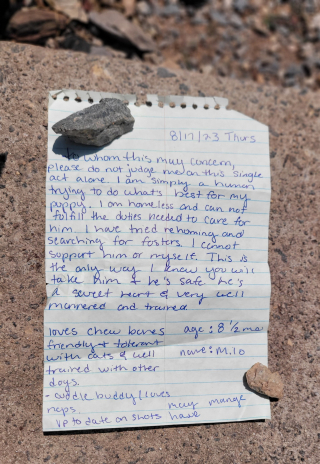 8/17/23 Thurs
To whom this may concern,
please do not judge me on this single
act alone. I am simply a human
trying to do whats best for my
puppy. I am homeless and can not
fulfill the duties needed to care for
him. I have tried rehoming and
searching for fosters. I cannot
support him or myself. This is
the only way I knew you will
take him & he's safe he's
a sweet heart & very well
mannered and trained
loves chew bones age: 8 1/2 mo
friendly & tolerant
with cats & well name: Milo
trained with other
dogs.
- cuddle buddy/loves
naps. may have mange
up to date on shots